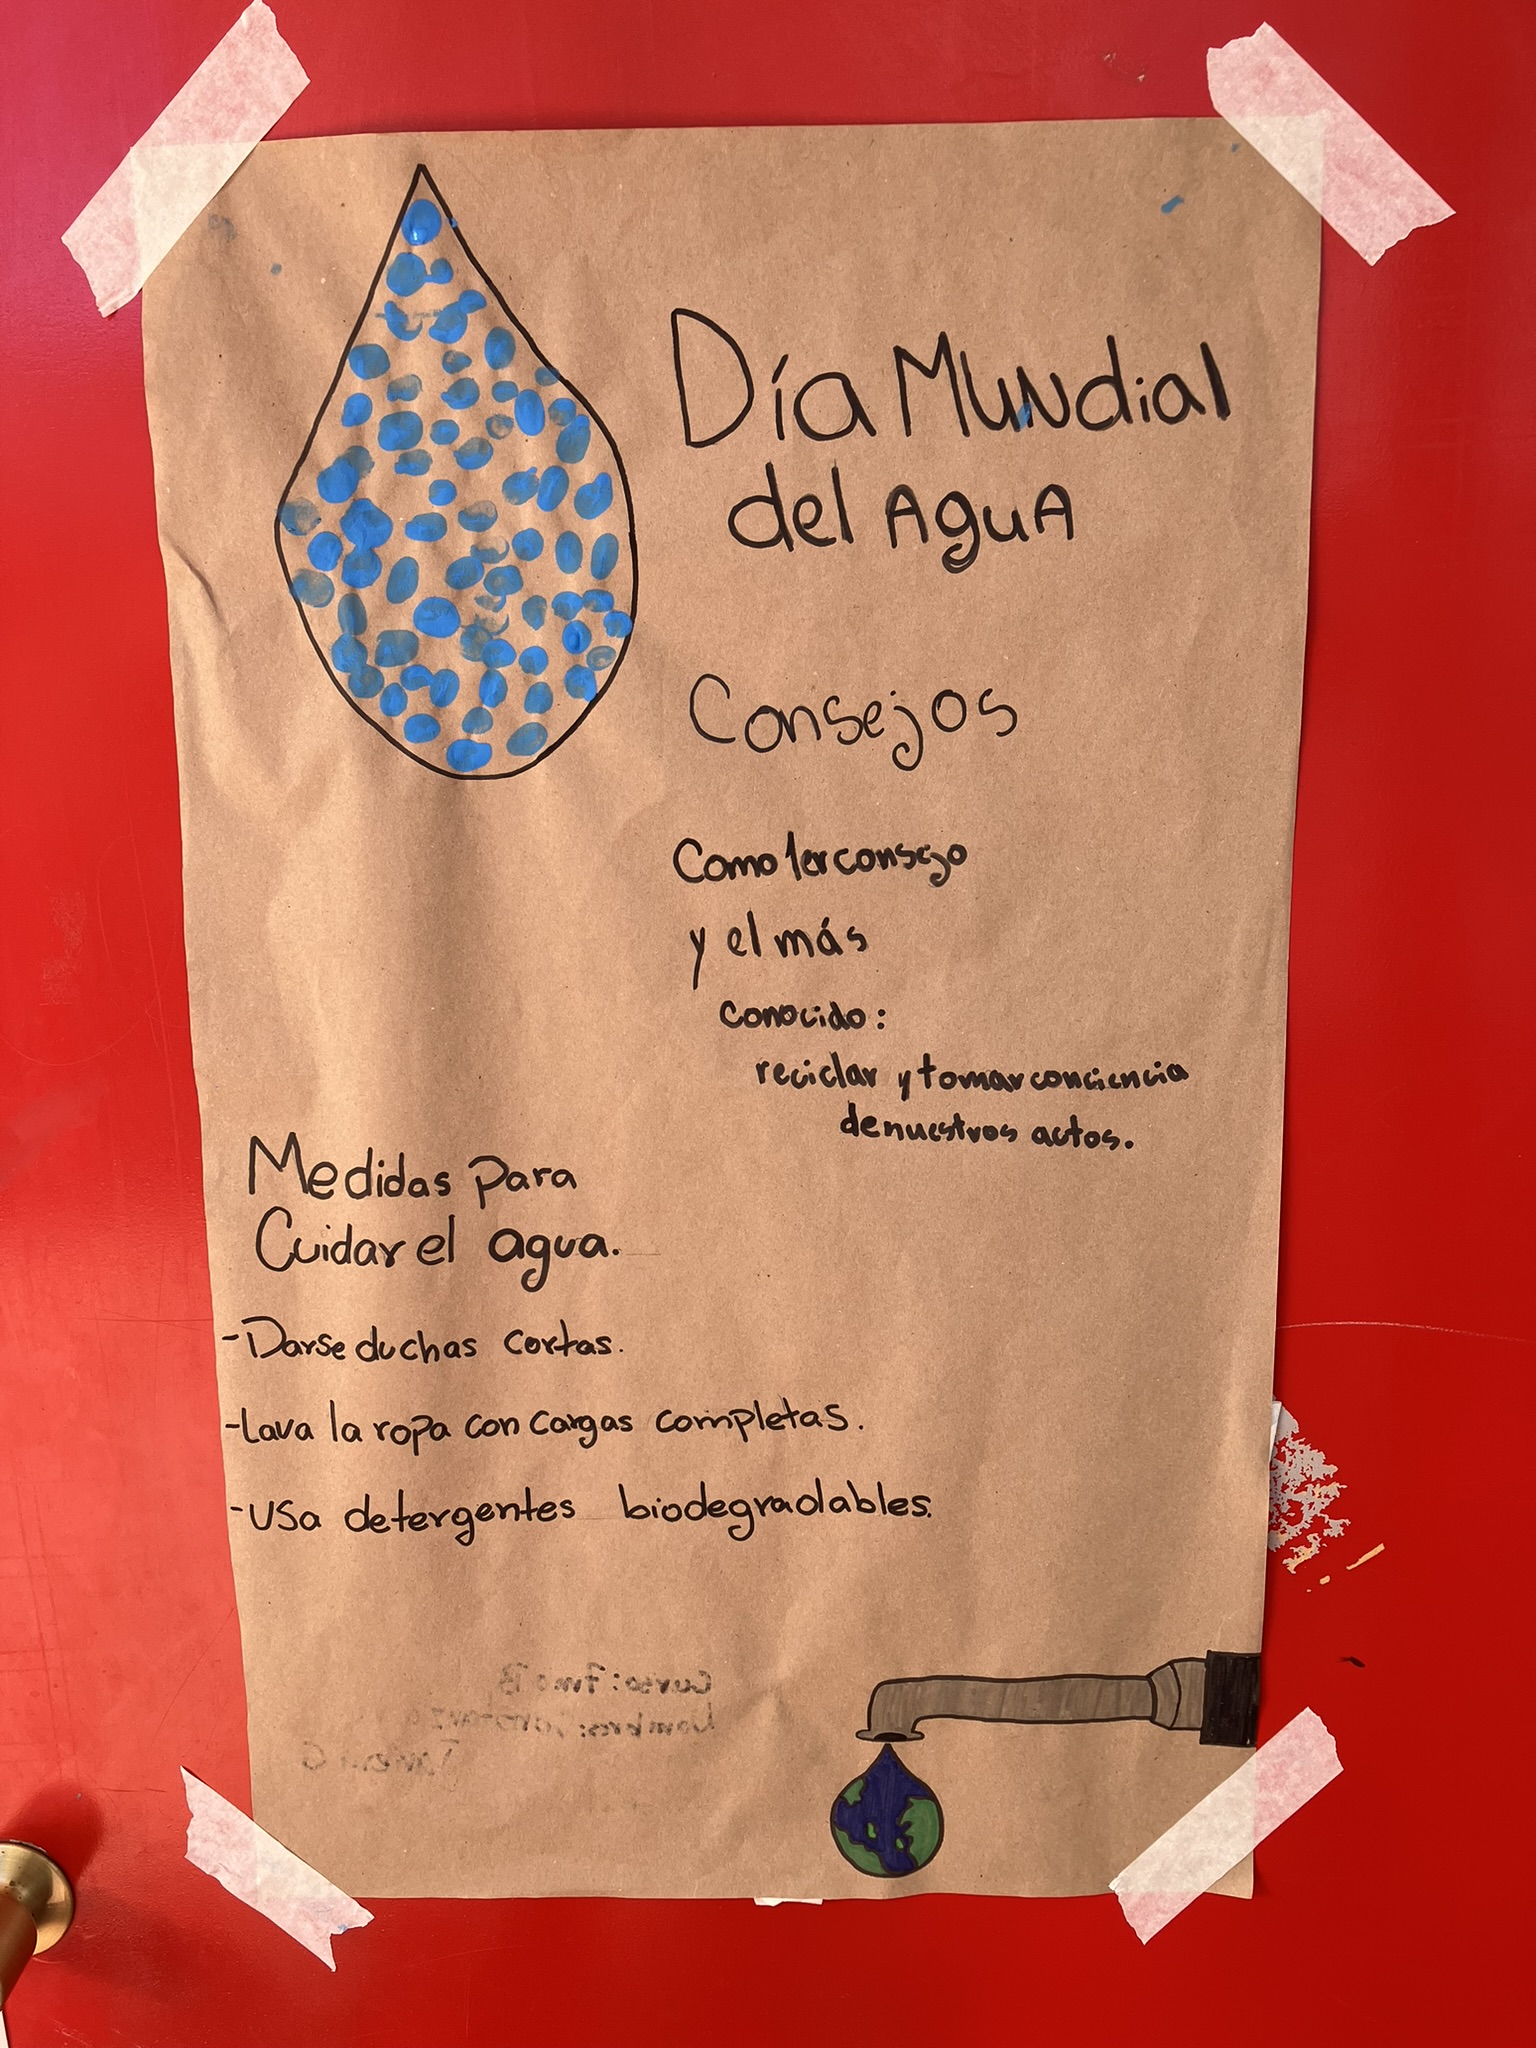 Día Mundial
del Agua
Consejos
Como 1er consejo
y el más
conocido:
reciclar y tomar conciencia
de nuestros actos.
Medidas para
Cuidar el agua.
-Darse duchas cortas.
-Lava la ropa con cargas completas.
-Usa detergentes biodegradables.
Curso: 7mo B
Nombres: